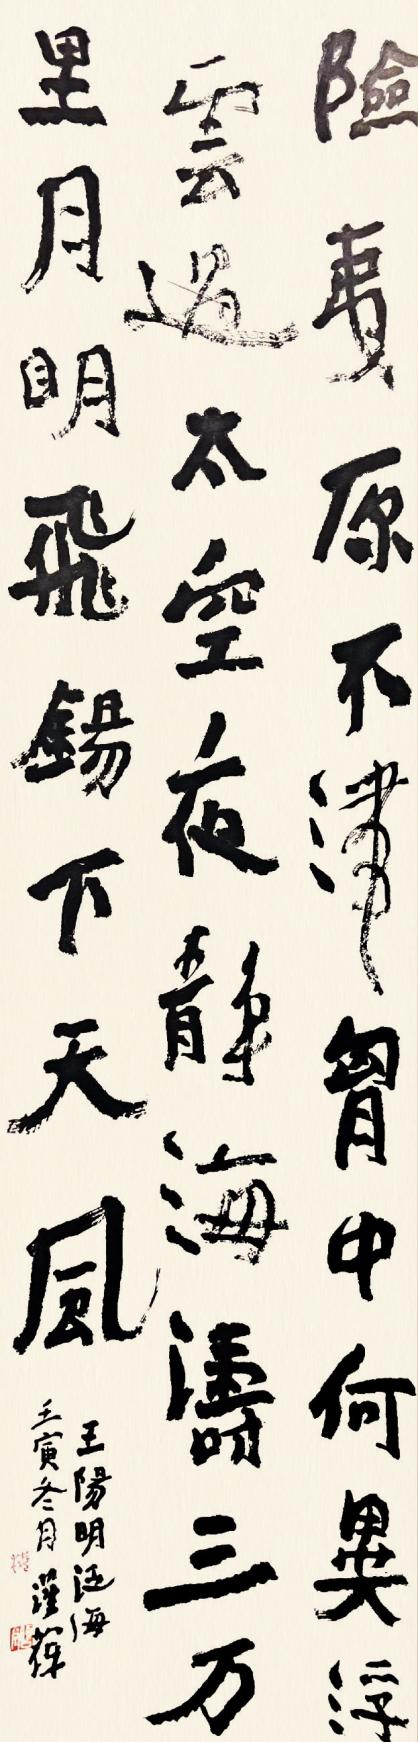 險夷原不滯胷中何異浮
雲過太空夜靜海濤三万
里月明飛錫下天風
王陽明泛海
壬寅冬月